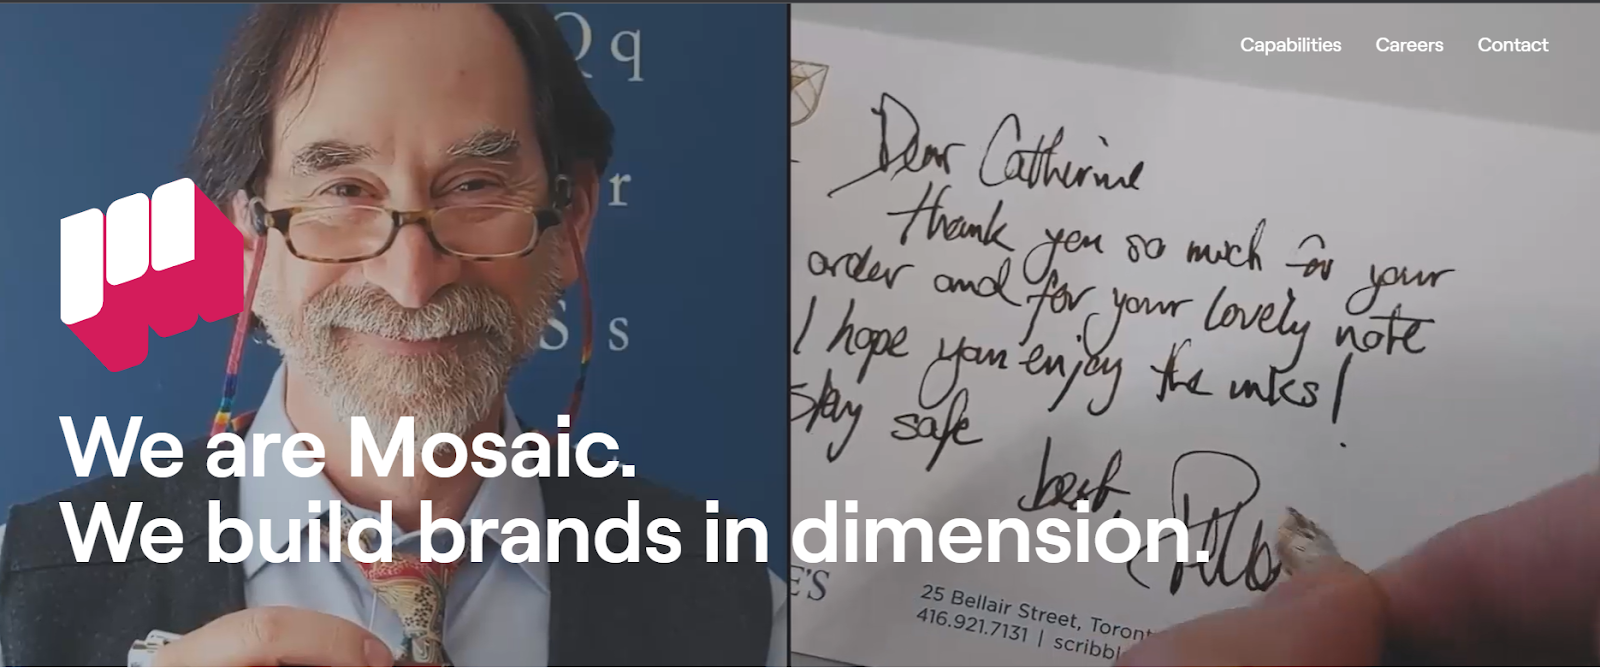 Capabilities Careers Contact
Q q
r
S s
We are Mosaic.
We build brands in dimension.
Dear Catherine
Thank you so much for your
order and for your lovely note
I hope you enjoy the inks!
Stay safe
best,
E'S
25 Bellair Street, Toront
416.921.7131 | scribbl